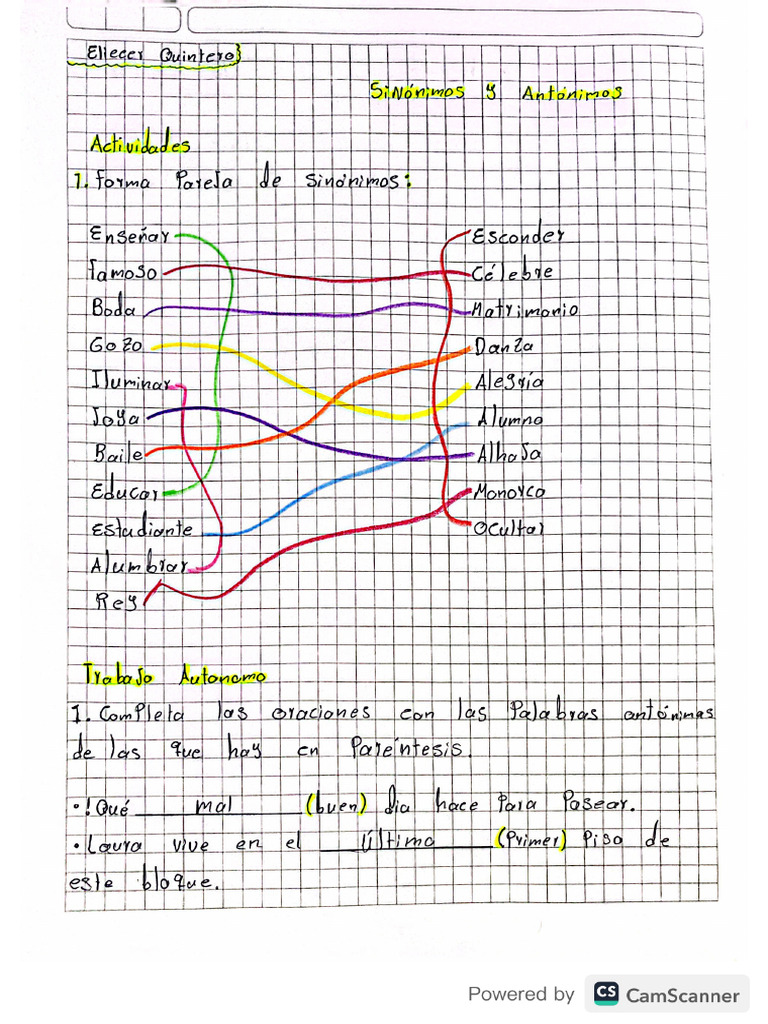 Eliecer Quintero}
Sinónimos y Antónimos
Actividades
1. Forma Pareja de Sinónimos:
Enseñar Esconder
famoso Célebre
Boda Matrimonio
Gozo Danza
Iluminar Alegría
Joya Alumno
Baile Alhaja
Educar Monorca
Estudiante Ocultar
Alumbrar
Rey
Trabajo Autonomo
1. Completa las oraciones con las Palabras antónimas
de las que hay en Paréntesis.
• ! Qué mal (buen) dia hace Para Pasear.
• Laura vive en el último (Primer) Piso de
este bloque.
Powered by CS CamScanner